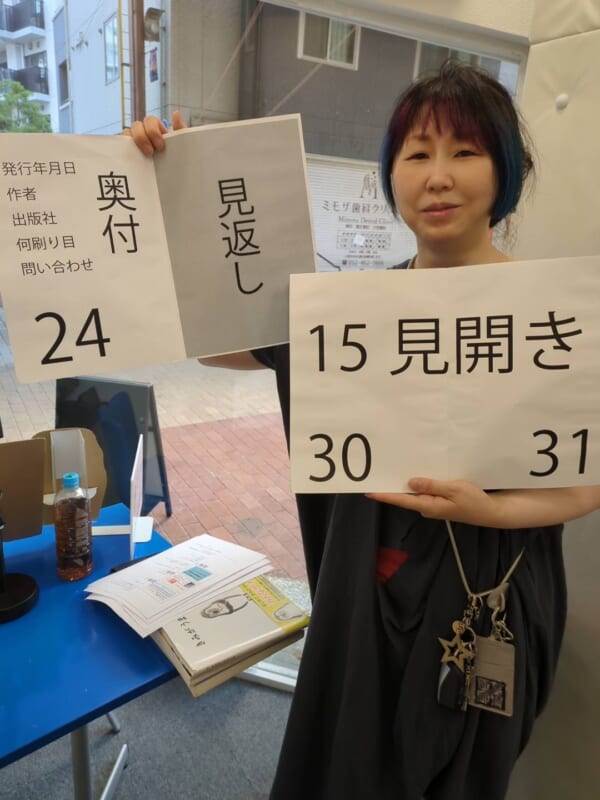 発行年月日
作者
出版社
何刷り目
問い合わせ
奥付
24
見返し
15 見開き
30
31
ミモザ歯科クリ
Mimoza Dental Clinic